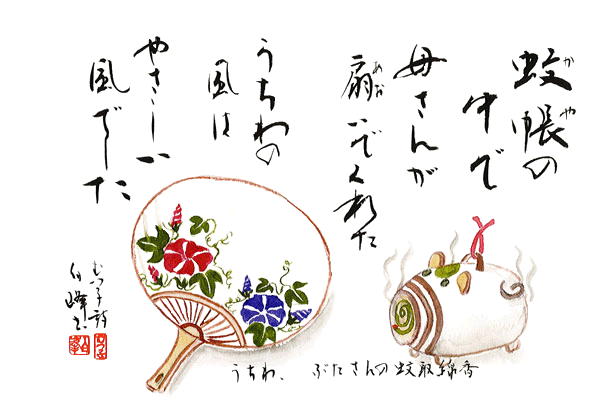 蚊帳の
かや
中で
母さんが
扇いでくれた
あお
うちわの
風は
やさしい
風でした
むつ子詩
うちわ、 ぶたさんの蚊取線香